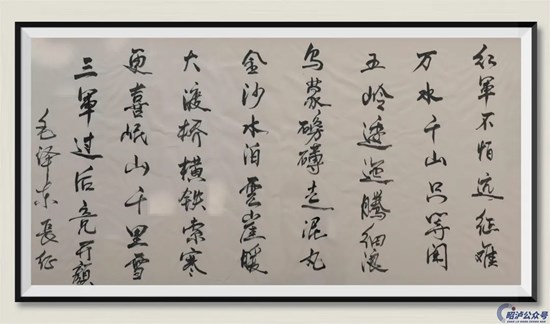 红軍不怕远征难
万水千山只等闲
五岭逶迤騰细浪
乌蒙磅礴走泥丸
金沙水泊雲崖暖
大渡桥横铁索寒
更喜岷山千里雪
三軍过后竞开颜
毛泽东長征
昭泸公众号
ZHAO LU GONG ZHONG HAO